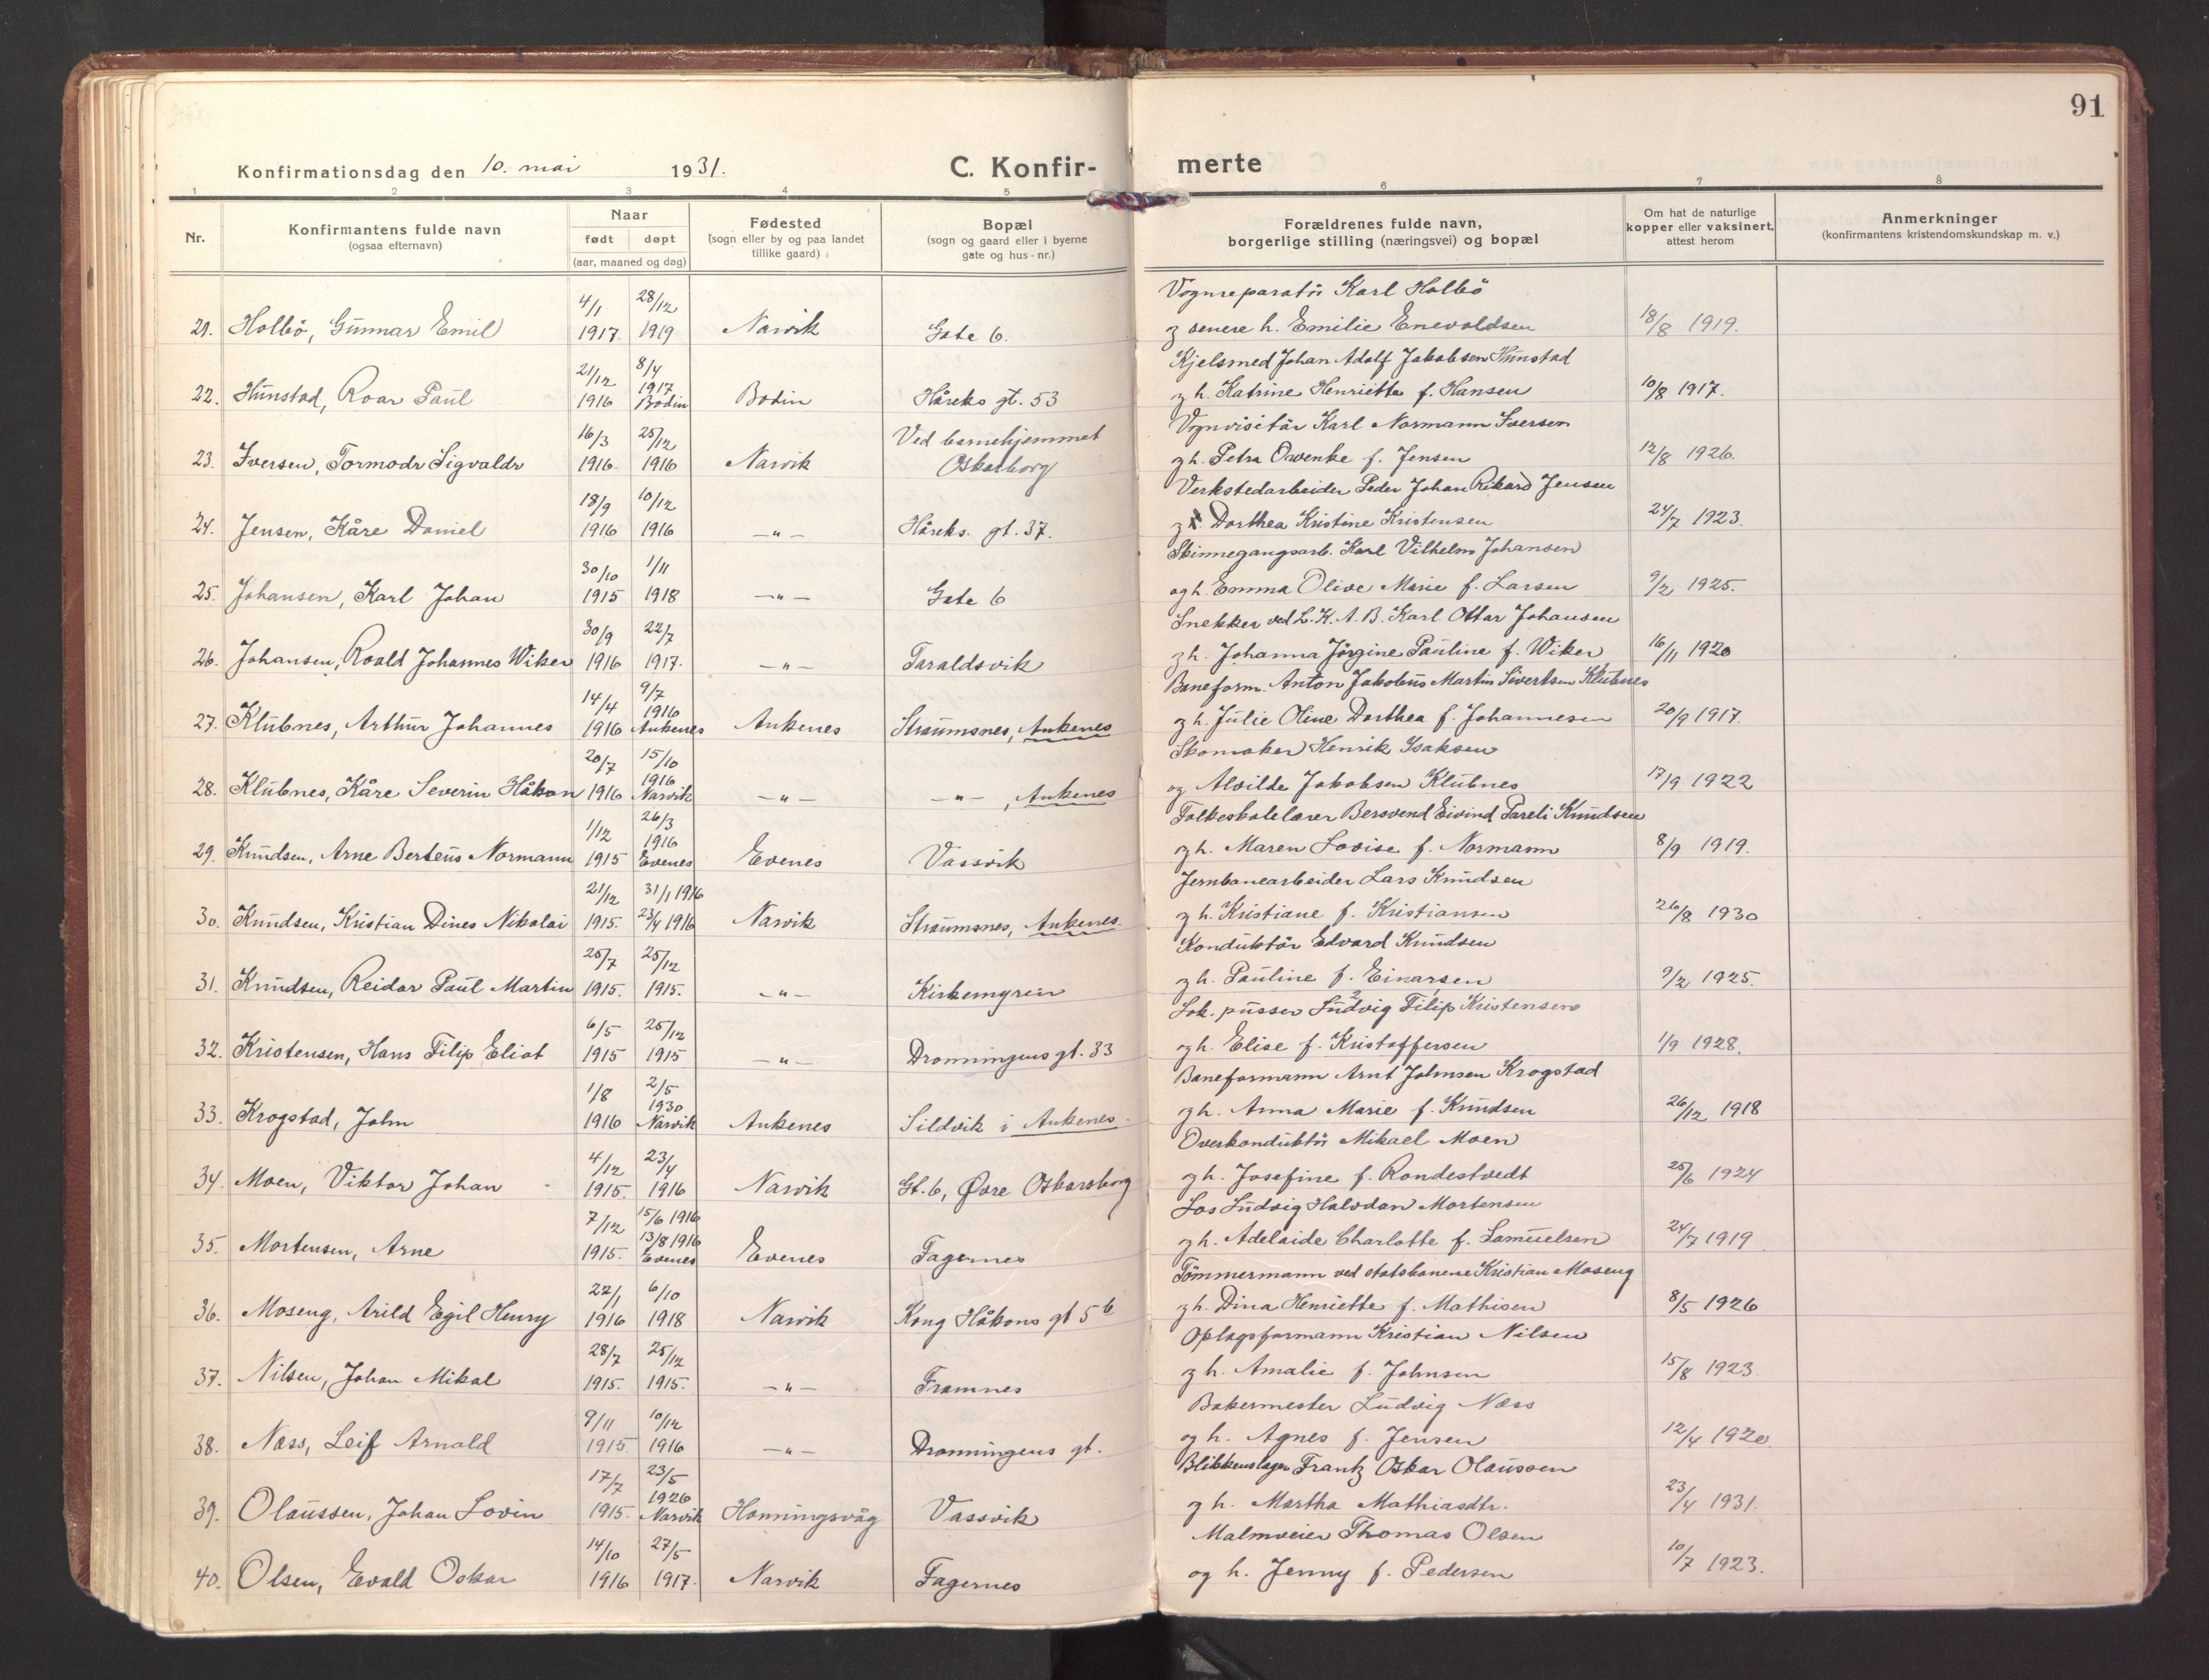 91
Konfirmationsdag den 10. mai 1931. C. Konfir- merte
1 2 3 4 5 6 7 8
Nr. Konfirmantens fulde navn (ogsaa efternavn) Naar født døpt (aar, maaned og dag) Fødested (sogn eller by og paa landet tillike gaard) Bopæl (sogn og gaard eller i byerne gate og hus-nr.) Forældrenes fulde navn, borgerlige stilling (næringsvei) og bopæl Om hat de naturlige kopper eller vaksinert, attest herom Anmerkninger (konfirmantens kristendomskundskap m. v.)
4/1 28/12 Vognreparatör Karl Holbö
21. Holbö, Gunnar Emil 1917. 1919 Narvik Gate 6. og senere h. Emilie Enevoldsen 18/8 1919.
21/12 8/4 1917 Kjelsmed Johan Adolf Jakobsen Hunstad
22. Hunstad, Roar Paul 1916 Bodin Bodin Håreks gt. 53 og h. Katrine Henriette f. Hansen 10/8 1917.
16/3 25/12 Ved barnehjemmet Vognvisitör Karl Normann Iversen
23. Iversen, Tormodr Sigvaldr 1916. 1916 Narvik Oskarborg og h. Petra f. Jensen 12/8 1926.
18/9 10/12 Verkstedarbeider Peder Johan Rikard Jensen
24. Jensen, Kåre Daniel 1916 1916 —"— Håreks. gt. 37. og Dorthea Kristine Kristensen 24/7 1923.
30/10 1/11 Skinnegangsarb. Karl Vilhelm Johansen
25. Johansen, Karl Johan 1915 1918 —"— Gate 6 og h. Emma Olive Marie f. Larsen 9/2 1925.
30/9 22/7 Snekker ved L.K.A.B. Karl Ottar Johansen
26. Johansen, Roald Johannes Wiker 1916 1917. —"— Taraldsvik og h. Johanna Jörgine Pauline f. Wiker 16/11 1920
14/4 9/7 1916 Baneform. Anton Jakobus Martin Sivertsen Klubnes
27. Klubnes, Arthur Johannes 1916 Ankenes Ankenes Straumsnes, Ankenes og h. Julie Oline Dorthea f. Johannesen 20/9 1917.
20/7 15/10 1916 Skomaker Henrik Isaksen
28. Klubnes, Kåre Severin Håkon 1916 Narvik —"— —"—, Ankenes og Alvilde Jakobsen Klubnes 17/9 1922
1/12 26/3 1916 Folkeskolelærer Bersvend Eivind Pareli Knudsen
29. Knudsen, Arne Berteus Normann 1915 Evenes Evenes Vassvik og h. Maren Lovise f. Normann 8/9 1919.
21/12 31/1 1916 Jernbanearbeider Lars Knudsen
30. Knudsen, Kristian Dines Nikolai 1915. 23/4 1916 Narvik Straumsnes, Ankenes. og h. Kristiane f. Kristiansen 26/8 1930
25/7 25/12 Konduktör Edvard Knudsen
31. Knudsen, Reidar Paul Martin 1915. 1915. —"— Kirkemyren og h. Pauline f. Einarsen 9/2 1925.
6/5 25/12 Lok. pusser Ludvig Filip Kristensen
32. Kristensen, Hans Filip Eliot 1915 1915 —"— Dronningens gt. 33 og h. Elise f. Kristoffersen 1/9 1928.
1/8 2/5 1930 Baneformann Arnt Johnsen Krogstad
33. Krogstad, John 1916 Narvik Ankenes Sildvik i Ankenes. og h. Anna Marie f. Knudsen 26/12 1918
4/12 23/4 Overkonduktör Mikael Moen
34. Moen, Viktor Johan 1915. 1916 Narvik Gt. 6, Øvre Oskarsborg og h. Josefine f. Rondestvedt 25/6 1924
7/12 15/6 1916 Los Ludvig Halvdan Mortensen
35. Mortensen, Arne 1915. 13/8 1916 Evenes Evenes Fagernes og h. Adelaide Charlotte f. Samuelsen 24/7 1919
22/1 6/10 Tömmermann ved statsbanene Kristian Moseng
36. Moseng, Arild Egil Henry 1916 1918 Narvik Kong Håkons gt 5b og h. Dina Henriette f. Mathisen 8/5 1926
28/7 25/12 Oplagsformann Kristian Nilsen
37. Nilsen, Johan Mikal 1915. 1915. —"— Framnes og h. Amalie f. Johnsen 15/8 1923.
9/11 10/12 Bakermester Ludvig Næss
38. Næss, Leif Arnold 1915. 1916 —"— Dronningens gt. og h. Agnes f. Jensen 12/4 1920.
17/7 23/5 1926 Blikkenslager Frantz Oskar Olaussen
39. Olaussen, Johan Lovin 1915. Narvik Honningsvåg Vassvik og h. Martha Mathiasdtr. 23/4 1931.
14/10 27/5 Malmveier Thomas Olsen
40. Olsen, Evald Oskar 1916 1917. Narvik Fagernes og h. Jenny f. Pedersen 10/7 1923.